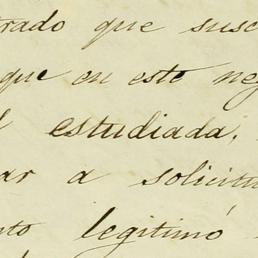 rado que susc
que en este neg
estudiada.
ar a solicitu
nto legitimó